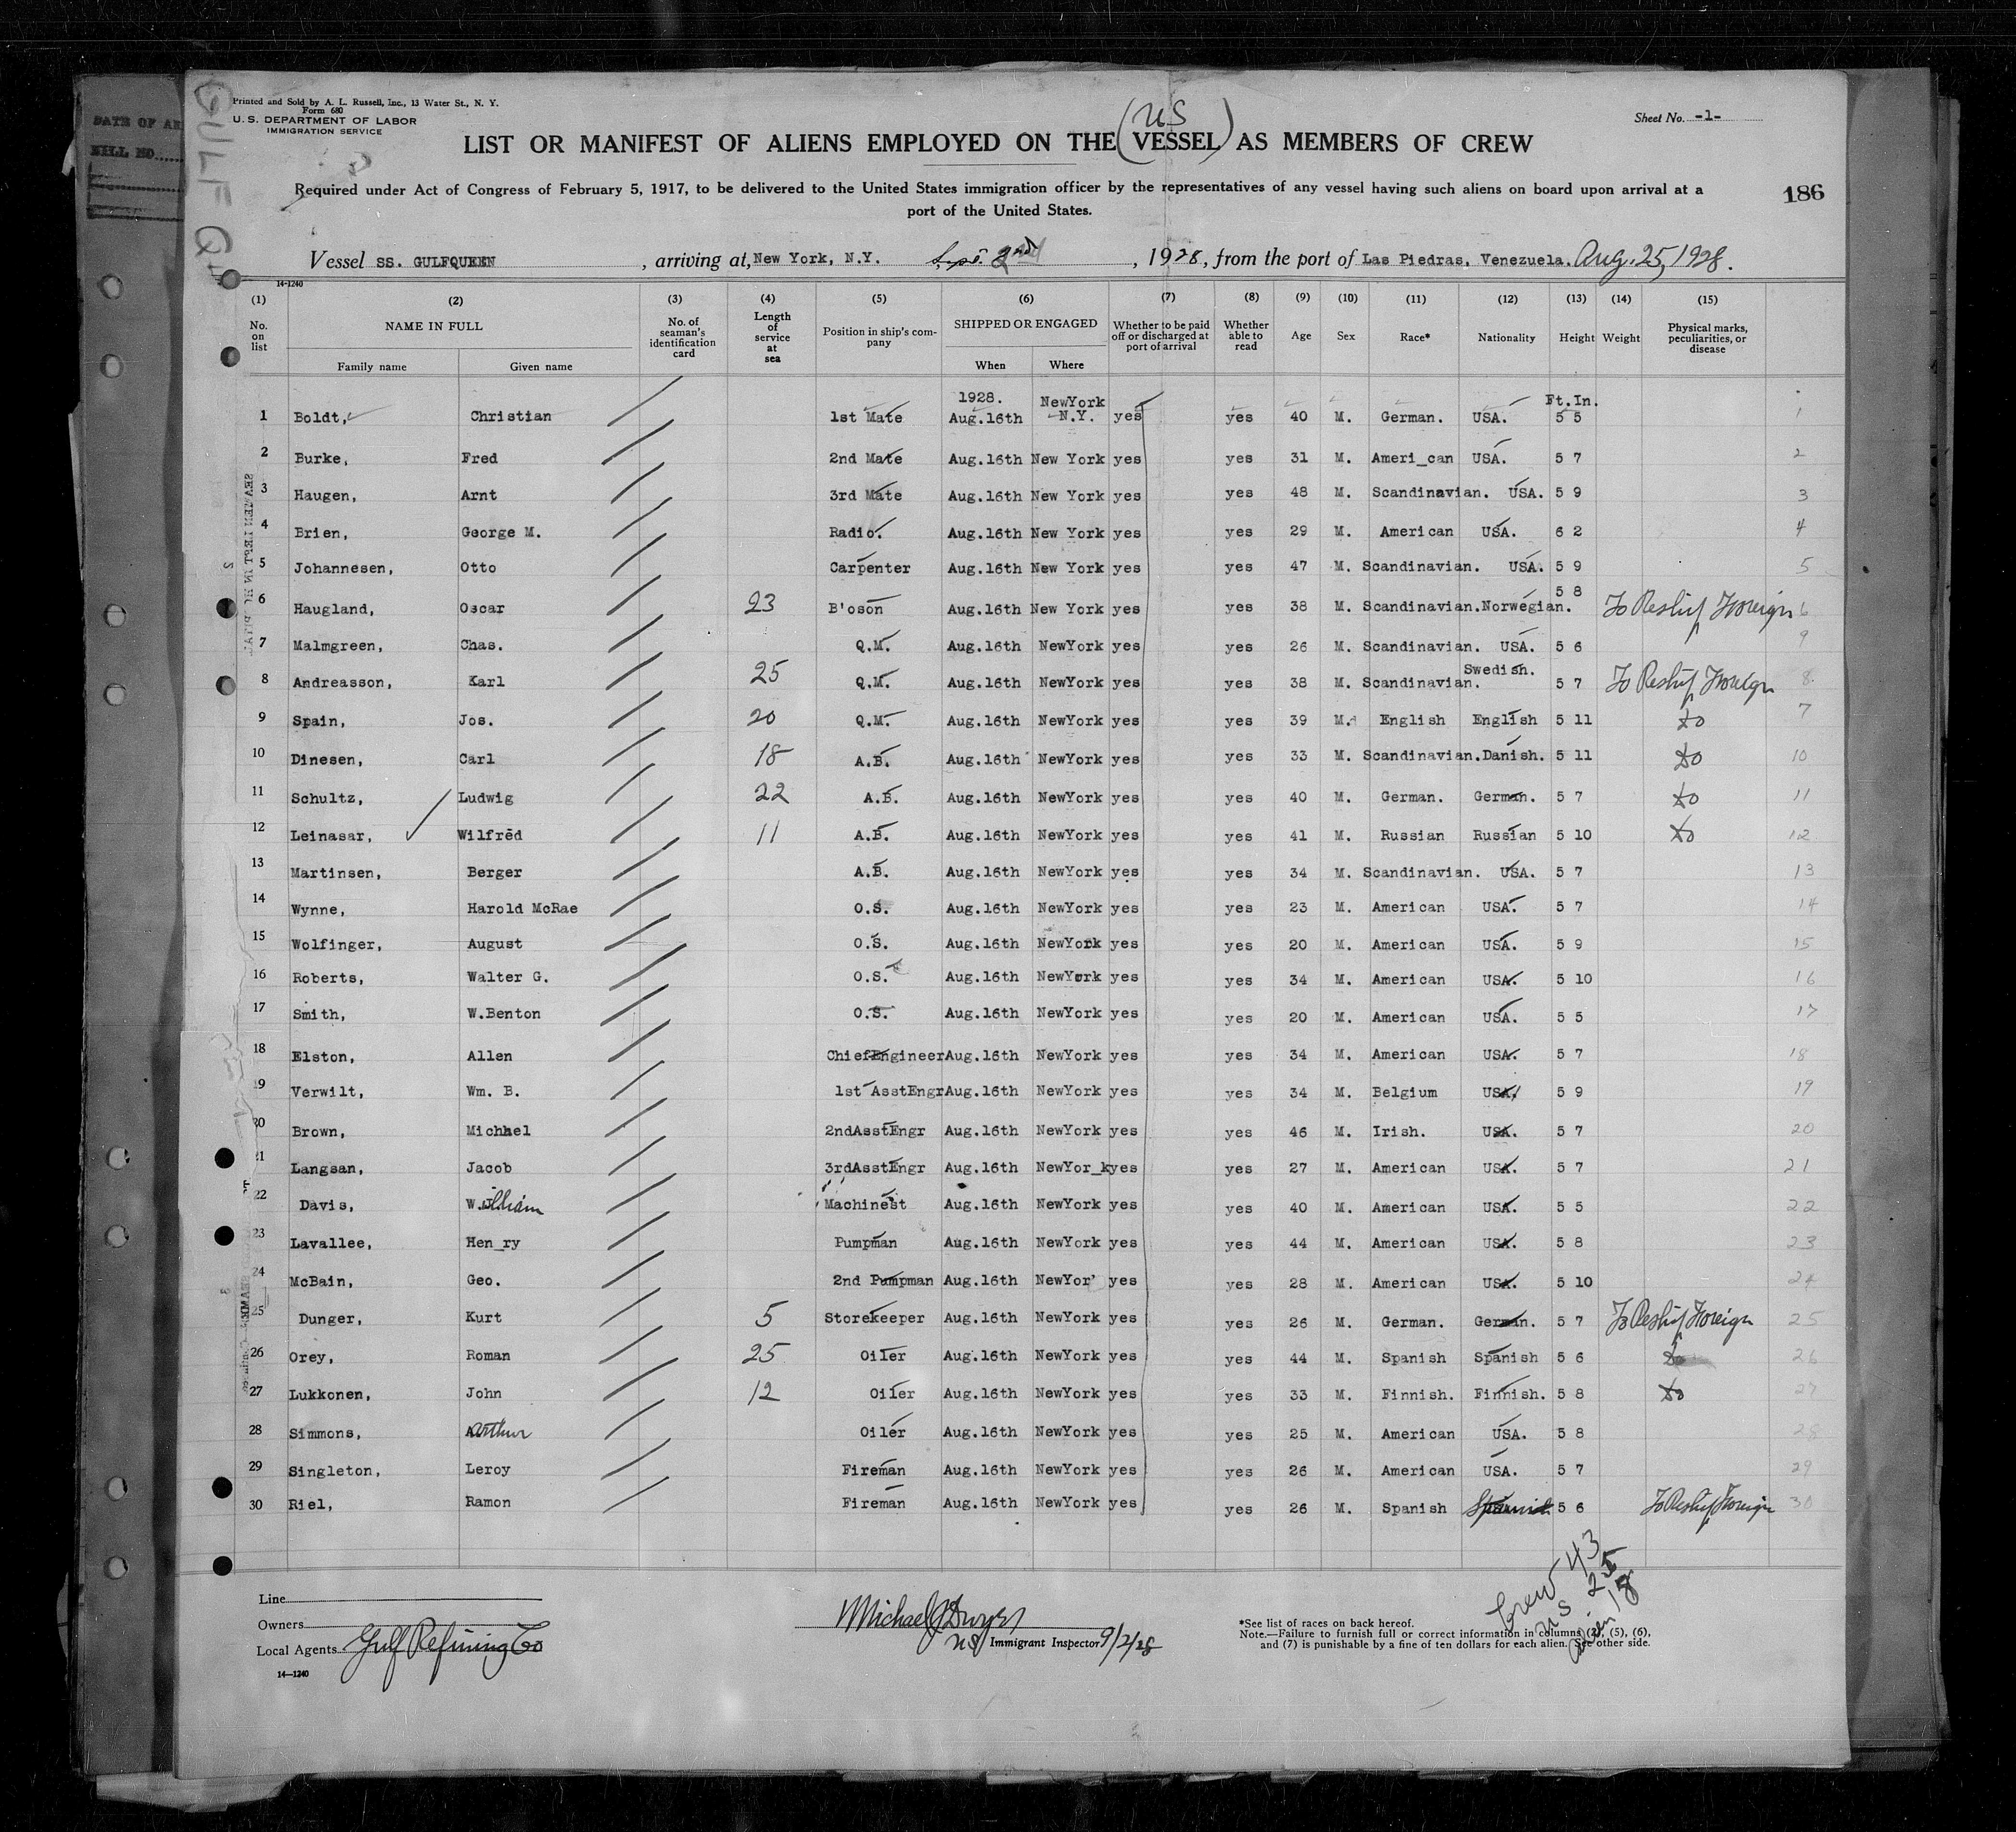 DATE OF AR
BILL NO.
GULF Q
Printed and Sold by A. L. Russell, Inc., 13 Water St., N. Y.
Form 680
U. S. DEPARTMENT OF LABOR
IMMIGRATION SERVICE
Sheet No. -1-
US
LIST OR MANIFEST OF ALIENS EMPLOYED ON THE (VESSEL) AS MEMBERS OF CREW
Required under Act of Congress of February 5, 1917, to be delivered to the United States immigration officer by the representatives of any vessel having such aliens on board upon arrival at a
port of the United States.
186
Vessel SS. GULFQUEEN, arriving at, New York, N.Y. Sept. 2nd, 1928, from the port of Las Piedras, Venezuela. Aug. 25, 1928.
14-1240
(1) (2) (3) (4) (5) (6) (7) (8) (9) (10) (11) (12) (13) (14) (15)
No. on list NAME IN FULL Family name Given name No. of seaman's identification card Length of service at sea Position in ship's company SHIPPED OR ENGAGED When Where Whether to be paid off or discharged at port of arrival Whether able to read Age Sex Race* Nationality Height Weight Physical marks, peculiarities, or disease
1928. NewYork Ft.In.
1 Boldt, Christian 1st Mate Aug.16th N.Y. yes yes 40 M. German. USA. 5 5 1
2 Burke, Fred 2nd Mate Aug.16th New York yes yes 31 M. Ameri_can USA. 5 7 2
3 Haugen, Arnt 3rd Mate Aug.16th New York yes yes 48 M. Scandinavian. USA. 5 9 3
4 Brien, George M. Radio. Aug.16th New York yes yes 29 M. American USA. 6 2 4
5 Johannesen, Otto Carpenter Aug.16th New York yes yes 47 M. Scandinavian. USA. 5 9 5
6 Haugland, Oscar 23 B'oson Aug.16th New York yes yes 38 M. Scandinavian. Norwegian. 5 8 To Reship Foreign 6
7 Malmgreen, Chas. Q.M. Aug.16th NewYork yes yes 26 M. Scandinavian. USA. 5 6 9
8 Andreasson, Karl 25 Q.M. Aug.16th NewYork yes yes 38 M. Scandinavian. Swedish. 5 7 To Reship Foreign 8
9 Spain, Jos. 20 Q.M. Aug.16th NewYork yes yes 39 M. English English 5 11 do 7
10 Dinesen, Carl 18 A.B. Aug.16th NewYork yes yes 33 M. Scandinavian. Danish. 5 11 do 10
11 Schultz, Ludwig 22 A.B. Aug.16th NewYork yes yes 40 M. German. German. 5 7 do 11
12 Leinasar, Wilfred 11 A.B. Aug.16th NewYork yes yes 41 M. Russian Russian 5 10 do 12
13 Martinsen, Berger A.B. Aug.16th NewYork yes yes 34 M. Scandinavian. USA. 5 7 13
14 Wynne, Harold McRae O.S. Aug.16th NewYork yes yes 23 M. American USA. 5 7 14
15 Wolfinger, August O.S. Aug.16th NewYork yes yes 20 M. American USA. 5 9 15
16 Roberts, Walter G. O.S. Aug.16th NewYork yes yes 34 M. American USA. 5 10 16
17 Smith, W.Benton O.S. Aug.16th NewYork yes yes 20 M. American USA. 5 5 17
18 Elston, Allen ChiefEngineer Aug.16th NewYork yes yes 34 M. American USA. 5 7 18
19 Verwilt, Wm. B. 1st AsstEngr Aug.16th NewYork yes yes 34 M. Belgium USA. 5 9 19
20 Brown, Michhel 2ndAsstEngr Aug.16th NewYork yes yes 46 M. Irish. USA. 5 7 20
21 Langsan, Jacob 3rdAsstEngr Aug.16th NewYor_k yes yes 27 M. American USA. 5 7 21
22 Davis, William Machinest Aug.16th NewYork yes yes 40 M. American USA. 5 5 22
23 Lavallee, Hen_ry Pumpman Aug.16th NewYork yes yes 44 M. American USA. 5 8 23
24 McBain, Geo. 2nd Pumpman Aug.16th NewYor' yes yes 28 M. American USA. 5 10 24
25 Dunger, Kurt 5 Storekeeper Aug.16th NewYork yes yes 26 M. German. German. 5 7 To Reship Foreign 25
26 Orey, Roman 25 Oiler Aug.16th NewYork yes yes 44 M. Spanish Spanish 5 6 do 26
27 Lukkonen, John 12 Oiler Aug.16th NewYork yes yes 33 M. Finnish. Finnish. 5 8 do 27
28 Simmons, Arthur Oiler Aug.16th NewYork yes yes 25 M. American USA. 5 8 28
29 Singleton, Leroy Fireman Aug.16th NewYork yes yes 26 M. American USA. 5 7 29
30 Riel, Ramon Fireman Aug.16th NewYork yes yes 26 M. Spanish Spanish 5 6 To Reship Foreign 30
Crew 43
US 25
Alien 18
Line
Owners
Local Agents Gulf Refining Co
14—1240
Michael J Dwyer
US Immigrant Inspector 9/2/28
*See list of races on back hereof.
Note.—Failure to furnish full or correct information in columns (2), (5), (6),
and (7) is punishable by a fine of ten dollars for each alien. See other side.